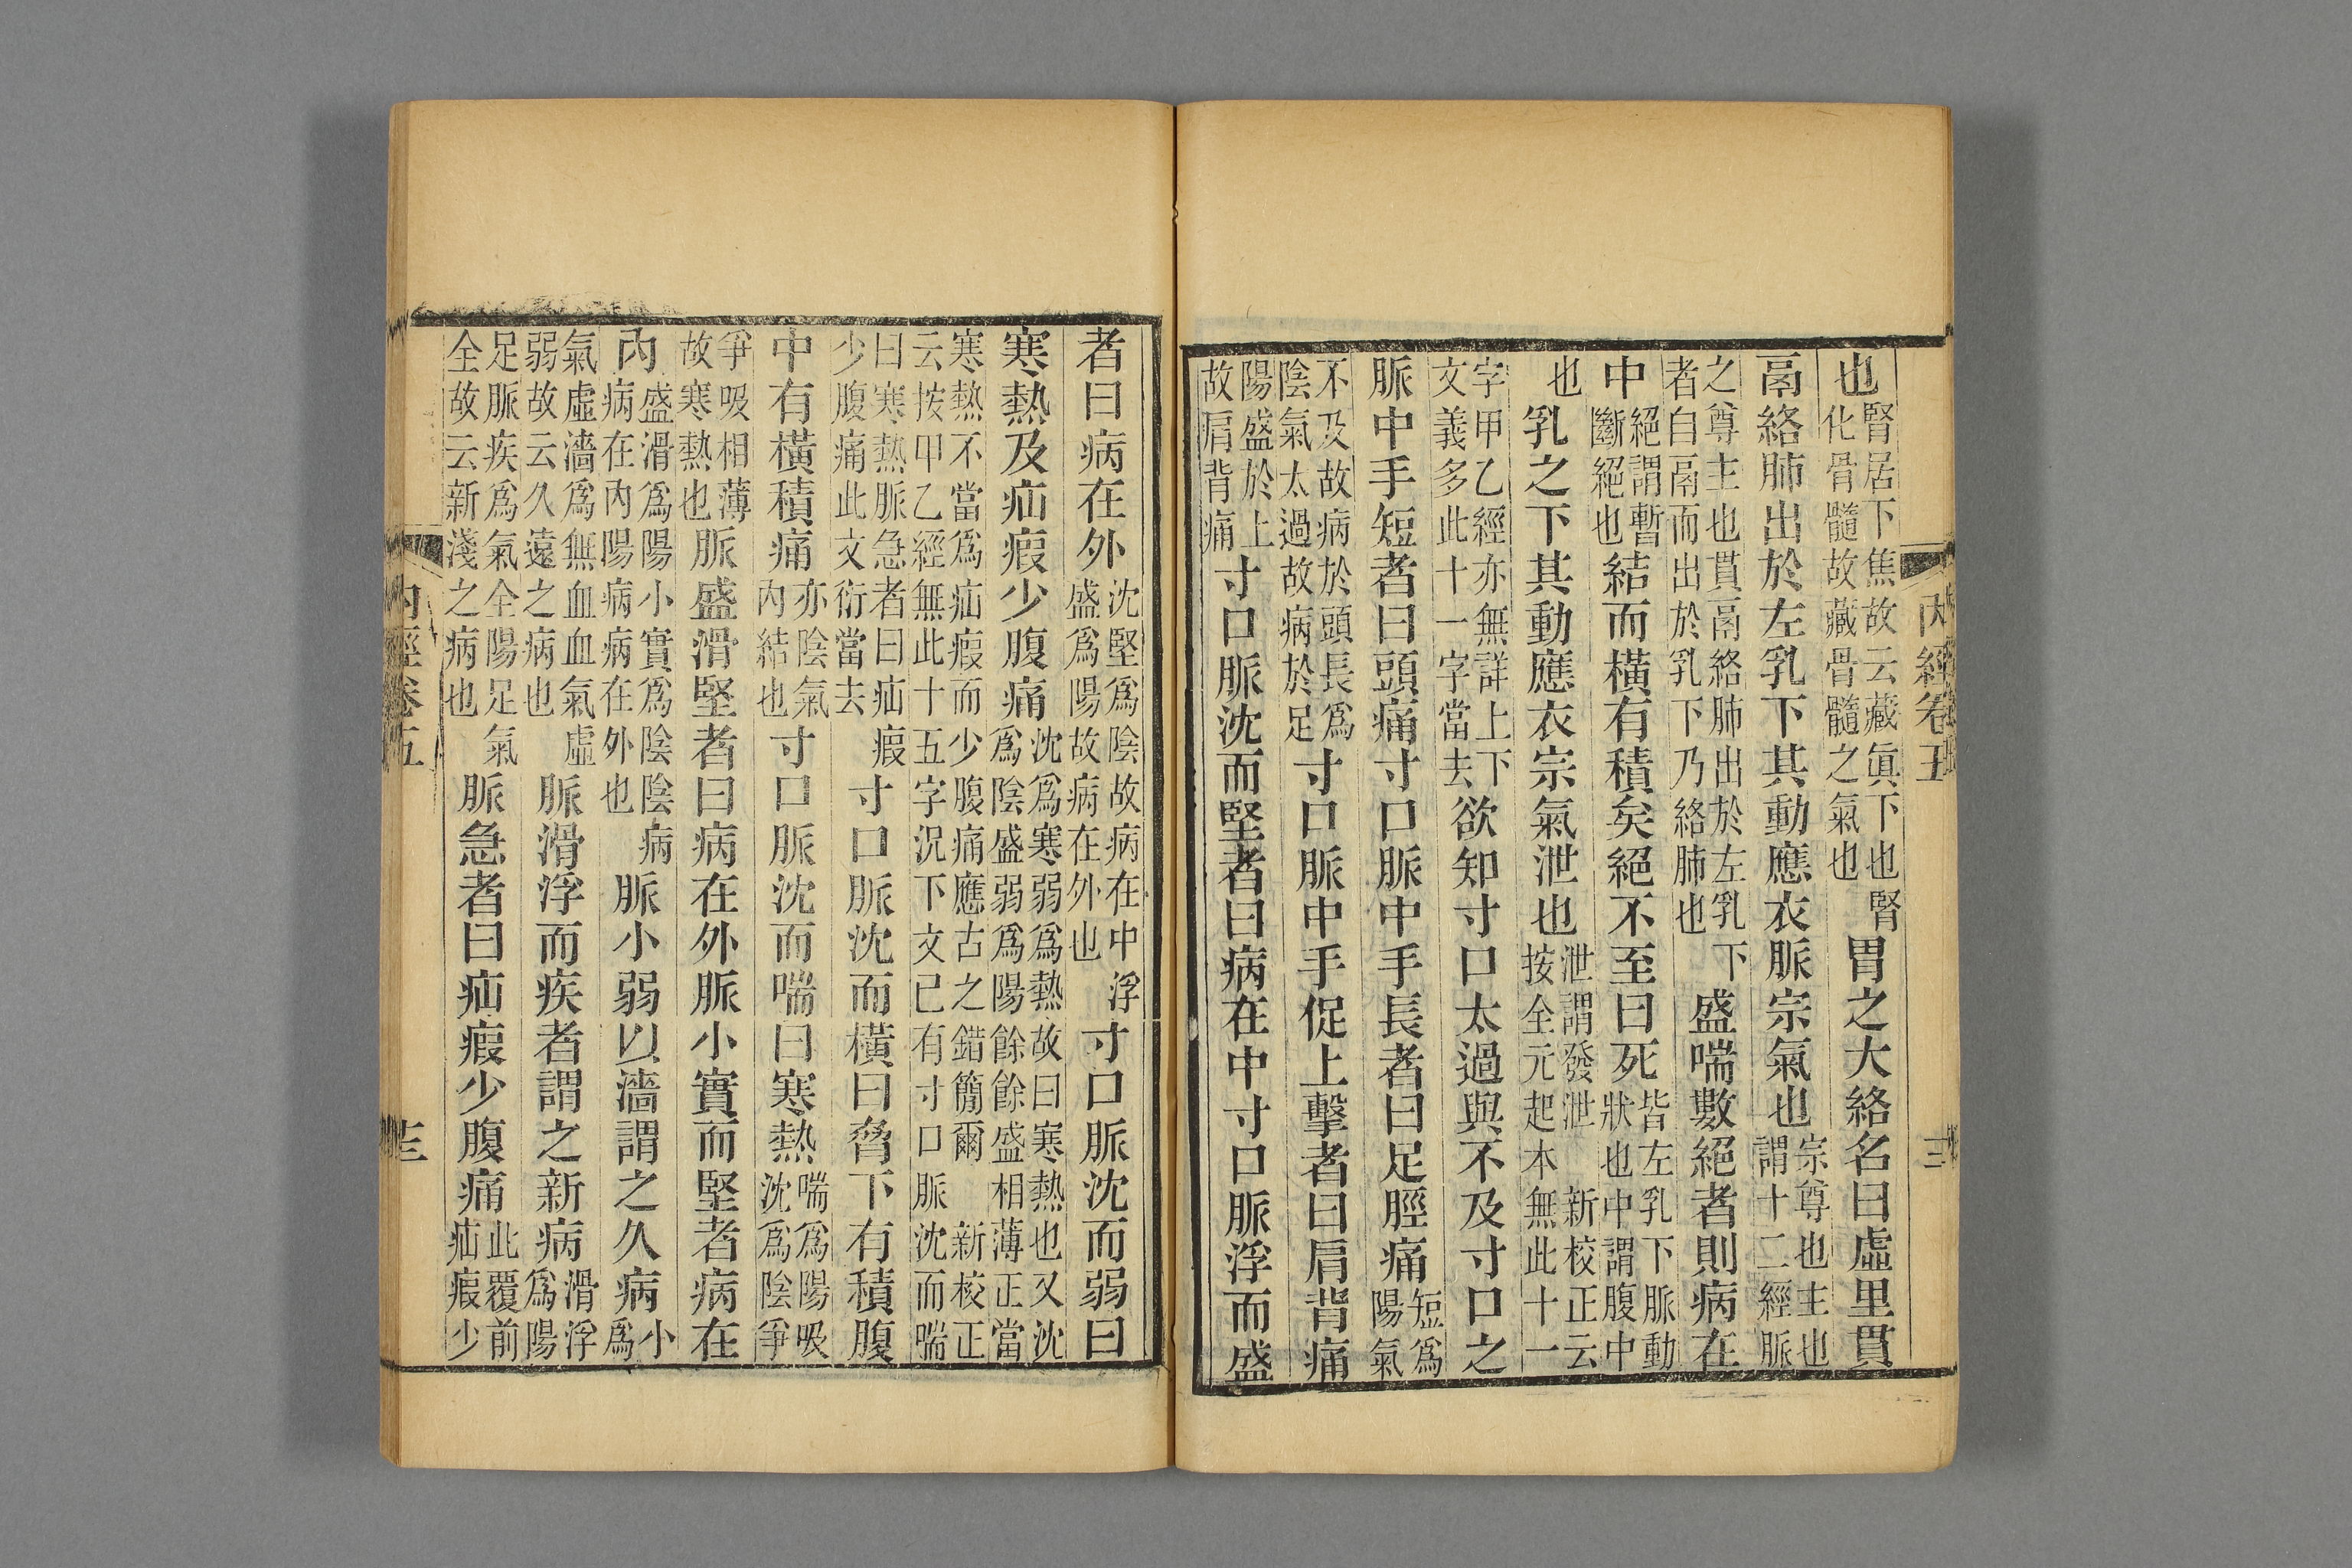 內經卷五
也腎居下焦故云藏眞下也腎化骨髓故藏骨髓之氣也胃之大絡名曰虛里貫
鬲絡肺出於左乳下其動應衣脈宗氣也宗尊也主也謂十二經脈
之尊主也貫鬲絡肺出於左乳下者自鬲而出於乳下乃絡肺也盛喘數絕者則病在
中絕謂暫斷絕也結而橫有積矣絕不至曰死皆左乳下脈動狀也中謂腹中
也乳之下其動應衣宗氣泄也泄謂發泄 新校正云按全元起本無此十一
字甲乙經亦無詳上下文義多此十一字當去欲知寸口太過與不及寸口之
脈中手短者曰頭痛寸口脈中手長者曰足脛痛短爲陽氣
不及故病於頭長爲陰氣太過故病於足寸口脈中手促上擊者曰肩背痛
陽盛於上故肩背痛寸口脈沈而堅者曰病在中寸口脈浮而盛
者曰病在外沈堅爲陰故病在中浮盛爲陽故病在外也寸口脈沈而弱曰
寒熱及疝瘕少腹痛沈爲寒弱爲熱故曰寒熱也又沈爲陰盛弱爲陽餘餘盛相薄正當
寒熱不當爲疝瘕而少腹痛應古之錯簡爾 新校正云按甲乙經無此十五字況下文已有寸口脈沈而喘
曰寒熱脈急者曰疝瘕少腹痛此文衍當去寸口脈沈而橫曰脅下有積腹
中有橫積痛亦陰氣內結也寸口脈沈而喘曰寒熱喘爲陽吸沈爲陰爭
爭吸相薄故寒熱也脈盛滑堅者曰病在外脈小實而堅者病在
內盛滑爲陽小實爲陰陰病病在內陽病病在外也脈小弱以濇謂之久病小爲
氣虛濇爲無血血氣虛弱故云久遠之病也脈滑浮而疾者謂之新病滑浮爲陽
足脈疾爲氣全陽足氣全故云新淺之病也脈急者曰疝瘕少腹痛此覆前疝瘕少
內經卷五